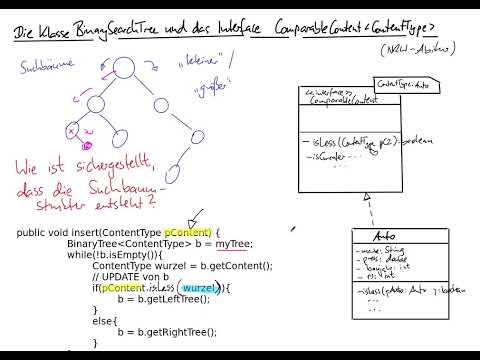 Die Klasse BinarySearchTree und das Interface ComparableContent<ContentType>
(NRW-Abitur)
Suchbäume
"kleiner" /
"größer"
Wie ist sichergestellt,
dass die Suchbaum-
struktur entsteht?
public void insert(ContentType pContent) {
BinaryTree<ContentType> b = myTree;
while(!b.isEmpty()){
ContentType wurzel = b.getContent();
// UPDATE von b
if(pContent.isLess(wurzel)){
b = b.getLeftTree();
}
else{
b = b.getRightTree();
}
ContentType: Auto
<<interface>>
ComparableContent
- isLess(ContentType pC2): boolean
- isGreater ...
Auto
- marke: String
- preis: double
- baujahr: int
- ps: int
- isLess(pAuto: Auto): boolean
...
...